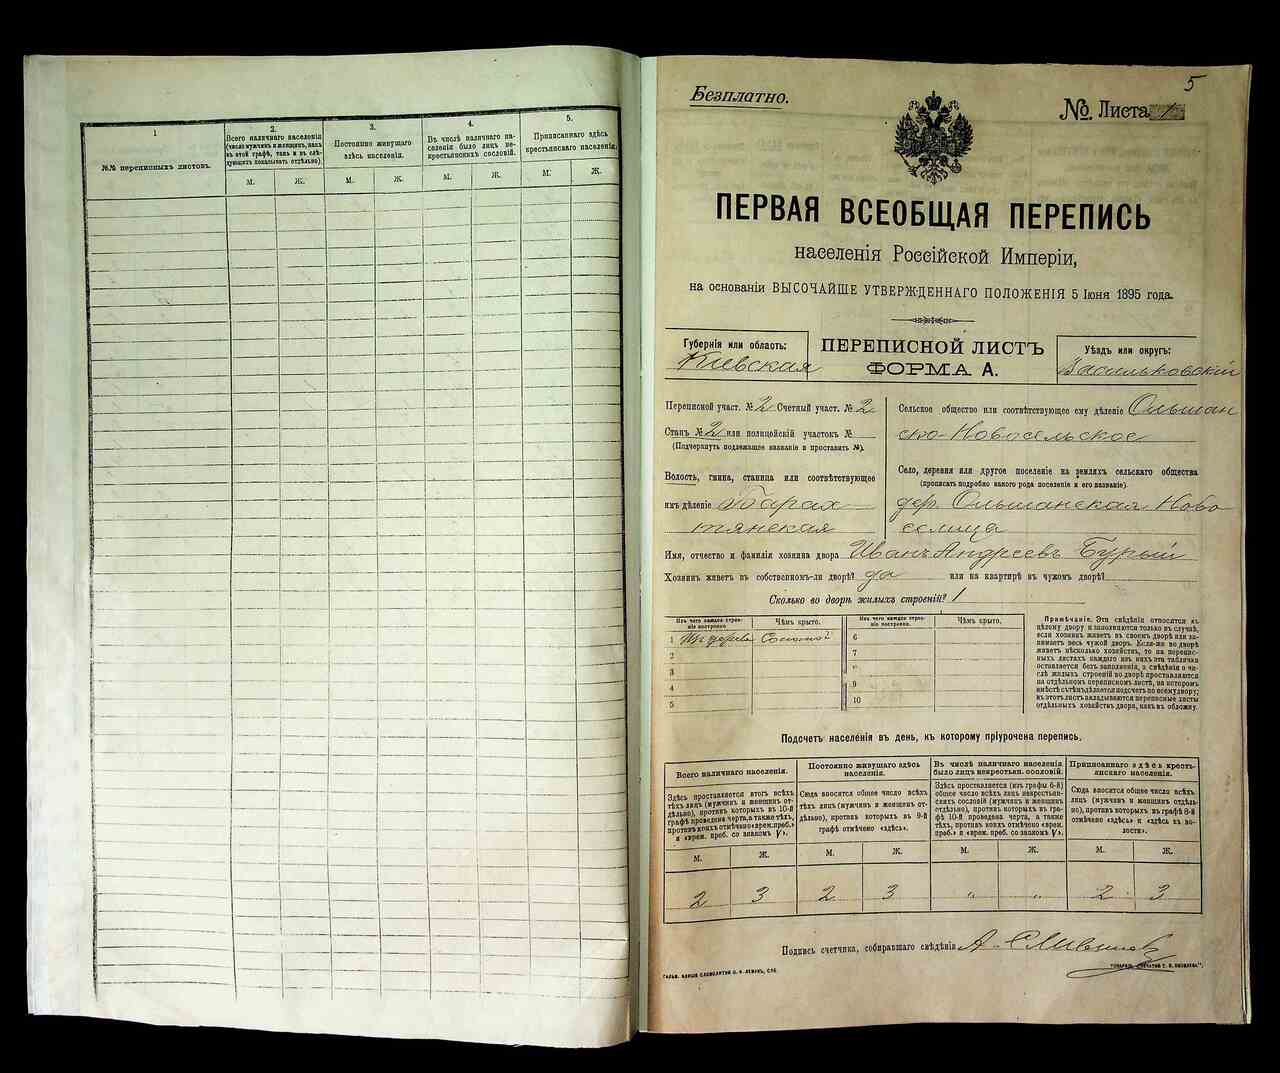 1
№№ переписныхъ листовъ.
2.
Всего наличнаго населенія
(число мужчинъ и женщинъ, какъ
въ этой графѣ, такъ и въ слѣ-
дующихъ показывать отдѣльно).
3.
Постоянно живущаго
здѣсь населенія.
4.
Въ числѣ наличнаго на-
селенія было лицъ не-
крестьянскихъ сословій.
5.
Приписаннаго здѣсь
крестьянскаго населенія.
М. Ж. М. Ж. М. Ж. М. Ж.
5
Безплатно.
№ Листа 1
ПЕРВАЯ ВСЕОБЩАЯ ПЕРЕПИСЬ
населенія Россійской Имперіи,
на основаніи ВЫСОЧАЙШЕ УТВЕРЖДЕННАГО ПОЛОЖЕНІЯ 5 Іюня 1895 года.
Губернія или область:
Кіевская
ПЕРЕПИСНОЙ ЛИСТЪ
ФОРМА А.
Уѣздъ или округъ:
Васильковскій
Переписной участ. № 2 Счетный участ. № 2
Станъ № 2 или полицейскій участокъ №
(Подчеркнуть подлежащее названіе и проставить №).
Волость, гмина, станица или соотвѣтствующее
имъ дѣленіе Барах
тянская
Сельское общество или соотвѣтствующее ему дѣленіе Ольшан
ско-Новосельское
Село, деревня или другое поселеніе на земляхъ сельскаго общества
(прописать подробно какого рода поселеніе и его названіе).
дер. Ольшанская Ново
селица
Имя, отчество и фамилія хозяина двора Иванъ Андреевъ Бурый
Хозяинъ живетъ въ собственномъ-ли дворѣ? да или на квартирѣ въ чужомъ дворѣ?
Сколько во дворѣ жилыхъ строеній? 1
Изъ чего каждое строе-
ніе построено.
Чѣмъ крыто.
1 Изъ дерева Соломой
2
3
4
5
Изъ чего каждое строе-
ніе построено.
Чѣмъ крыто.
6
7
9
10
Примѣчаніе. Эти свѣдѣнія относятся къ
цѣлому двору и заполняются только въ случаѣ,
если хозяинъ живетъ въ своемъ дворѣ или за-
нимаетъ весь чужой дворъ. Если-же во дворѣ
живетъ нѣсколько хозяйствъ, то на перепис-
ныхъ листахъ каждаго изъ нихъ эта табличка
оставляется безъ заполненія, а свѣдѣнія о чи-
слѣ жилыхъ строеній во дворѣ проставляются
на отдѣльномъ переписномъ листѣ, на которомъ
вмѣстѣ съ тѣмъ дѣлается подсчетъ по всему двору;
въ этотъ листъ вкладываются переписные листы
отдѣльныхъ хозяйствъ двора, какъ въ обложку.
Подсчетъ населенія въ день, къ которому пріурочена перепись.
Всего наличнаго населенія.
Здѣсь проставляется итогъ всѣхъ
тѣхъ лицъ (мужчинъ и женщинъ от-
дѣльно), противъ которыхъ въ 10-й
графѣ проведена черта, а также тѣхъ,
противъ коихъ отмѣчено «врем. преб.»
и «врем. преб. со знакомъ V».
Постоянно живущаго здѣсь
населенія.
Сюда вносится общее число всѣхъ
тѣхъ лицъ (мужчинъ и женщинъ от-
дѣльно), противъ которыхъ въ 9-й
графѣ отмѣчено «здѣсь».
Въ числѣ наличнаго населенія
было лицъ некрестьян. сословій.
Здѣсь проставляется (изъ графы 6-й)
общее число всѣхъ лицъ некрестьян-
скихъ сословій (мужчинъ и женщинъ
отдѣльно), противъ которыхъ въ гра-
фѣ 10-й проведена черта, а также
тѣхъ, противъ коихъ отмѣчено «врем.
преб.» и «врем. преб. со знакомъ V».
Приписаннаго здѣсь кресть-
янскаго населенія.
Сюда вносится общее число всѣхъ
лицъ (мужчинъ и женщинъ отдѣль-
но), противъ которыхъ въ графѣ 8-й
отмѣчено «здѣсь» и «здѣсь въ во-
лости».
М. Ж. М. Ж. М. Ж. М. Ж.
2 3 2 3 „ „ 2 3
Подпись счетчика, собиравшаго свѣдѣнія А.